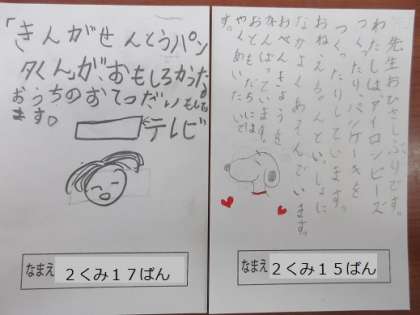 「きんがせんとうパン
タくん」が、おもしろかったな。
おうちのおてつだいもして
ます。
テレビ
なまえ
2くみ17ばん
先生おひさしぶりです。
わたしはアイロンビーズ
をつくったりパンケーキを
つくったりしています。
おねえちゃんといっしょに
なかよくあそんでいます。
おべんきょうを
がんばっています。
なまえ
2くみ15ばん